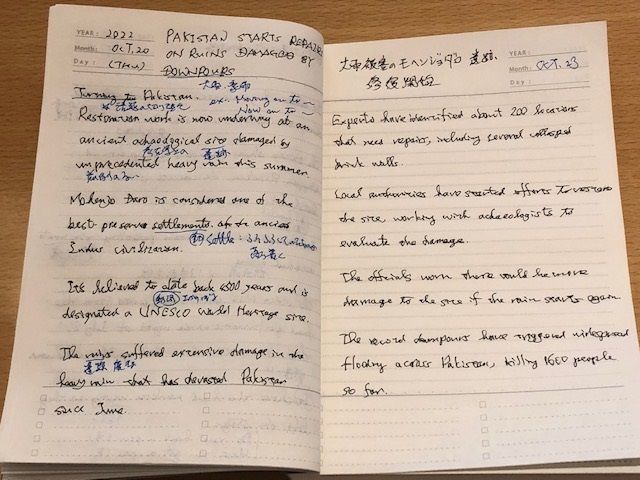 YEAR : 2022
Month: OCT. 20
Day : (THU)
PAKISTAN STARTS REPAIRS
ON RUINS DAMAGED BY
DOWNPOURS
大雨・豪雨
Turning to Pakistan.
ex. Moving on to ~
Now on to ~
Restoration work is now underway at an
ancient achaeological site damaged by
考古学上の 遺跡
unprecedented heavy rain this summer.
Mohenjo Daro is considered one of the
best preserve settlements of the ancient
Indus civilization.
settle :
It's believed to date back 4500 years and is
designated a UNESCO World Heritage site.
The ruins suffered extensive damage in the
遺跡 廃墟
heavy rain that has devasted Pakistan
since June.
大雨被害のモヘンジョダロ 遺跡
修復開始
YEAR :
Month: OCT. 23
Day :
Experts have identified about 200 locations
that need repairs, including several collapsed
brick walls.
Local authorities have started efforts to restore
the site, working with achaeologists to
evaluate the damage.
The officials warn there could be more
damage to the site if the rain starts again.
The record downpours have triggered widespread
flooding across Pakistan, killing 1600 people
so far.